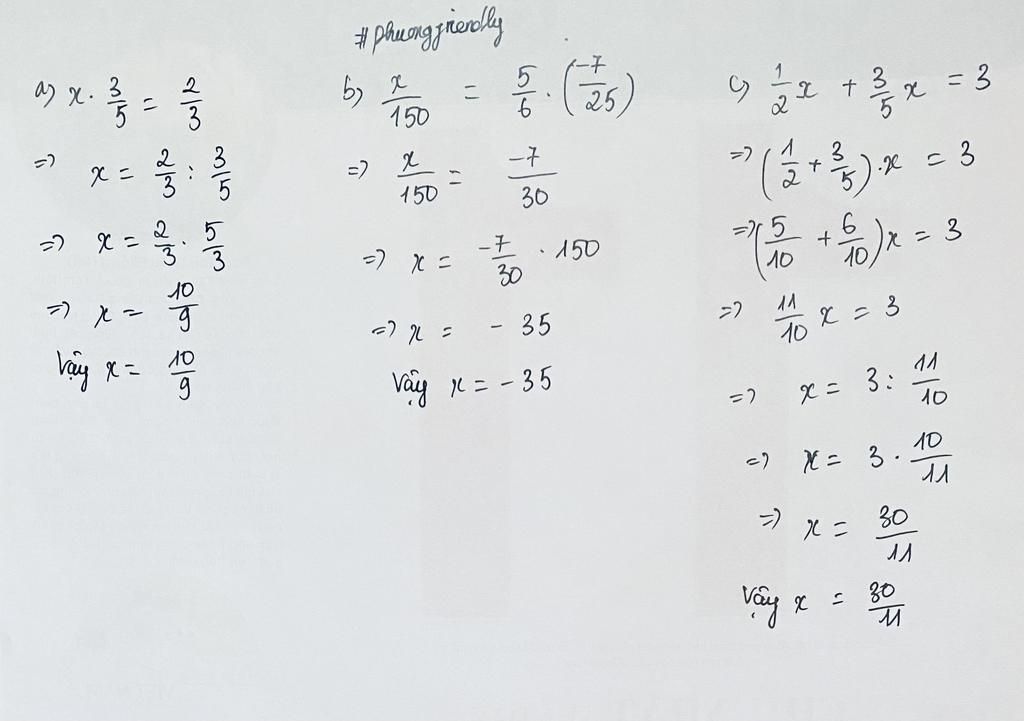 #phuongfriendly
a) x . 3/5 = 2/3
=> x = 2/3 : 3/5
=> x = 2/3 . 5/3
=> x = 10/9
Vậy x = 10/9
b) x/150 = 5/6 . (-7/25)
=> x/150 = -7/30
=> x = -7/30 . 150
=> x = - 35
Vậy x = - 35
c) 1/2 x + 3/5 x = 3
=> (1/2 + 3/5) . x = 3
=> (5/10 + 6/10) x = 3
=> 11/10 x = 3
=> x = 3 : 11/10
=> x = 3 . 10/11
=> x = 30/11
Vậy x = 30/11